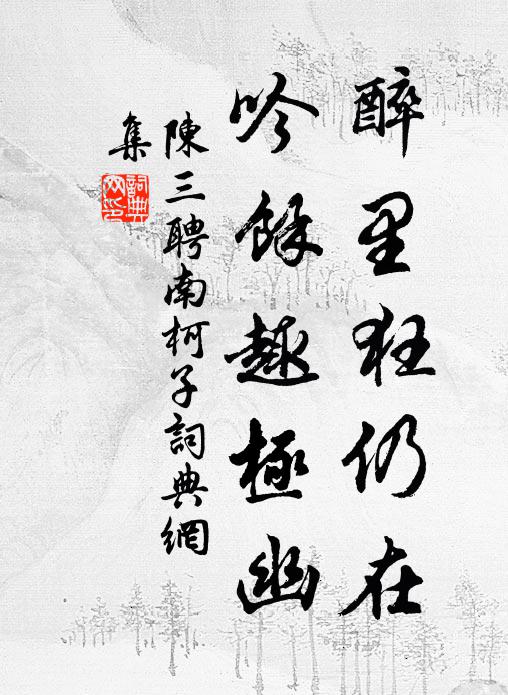 醉里狂仍在
吟餘趣極幽
陳三聘南柯子詞典網
集
詞典網印